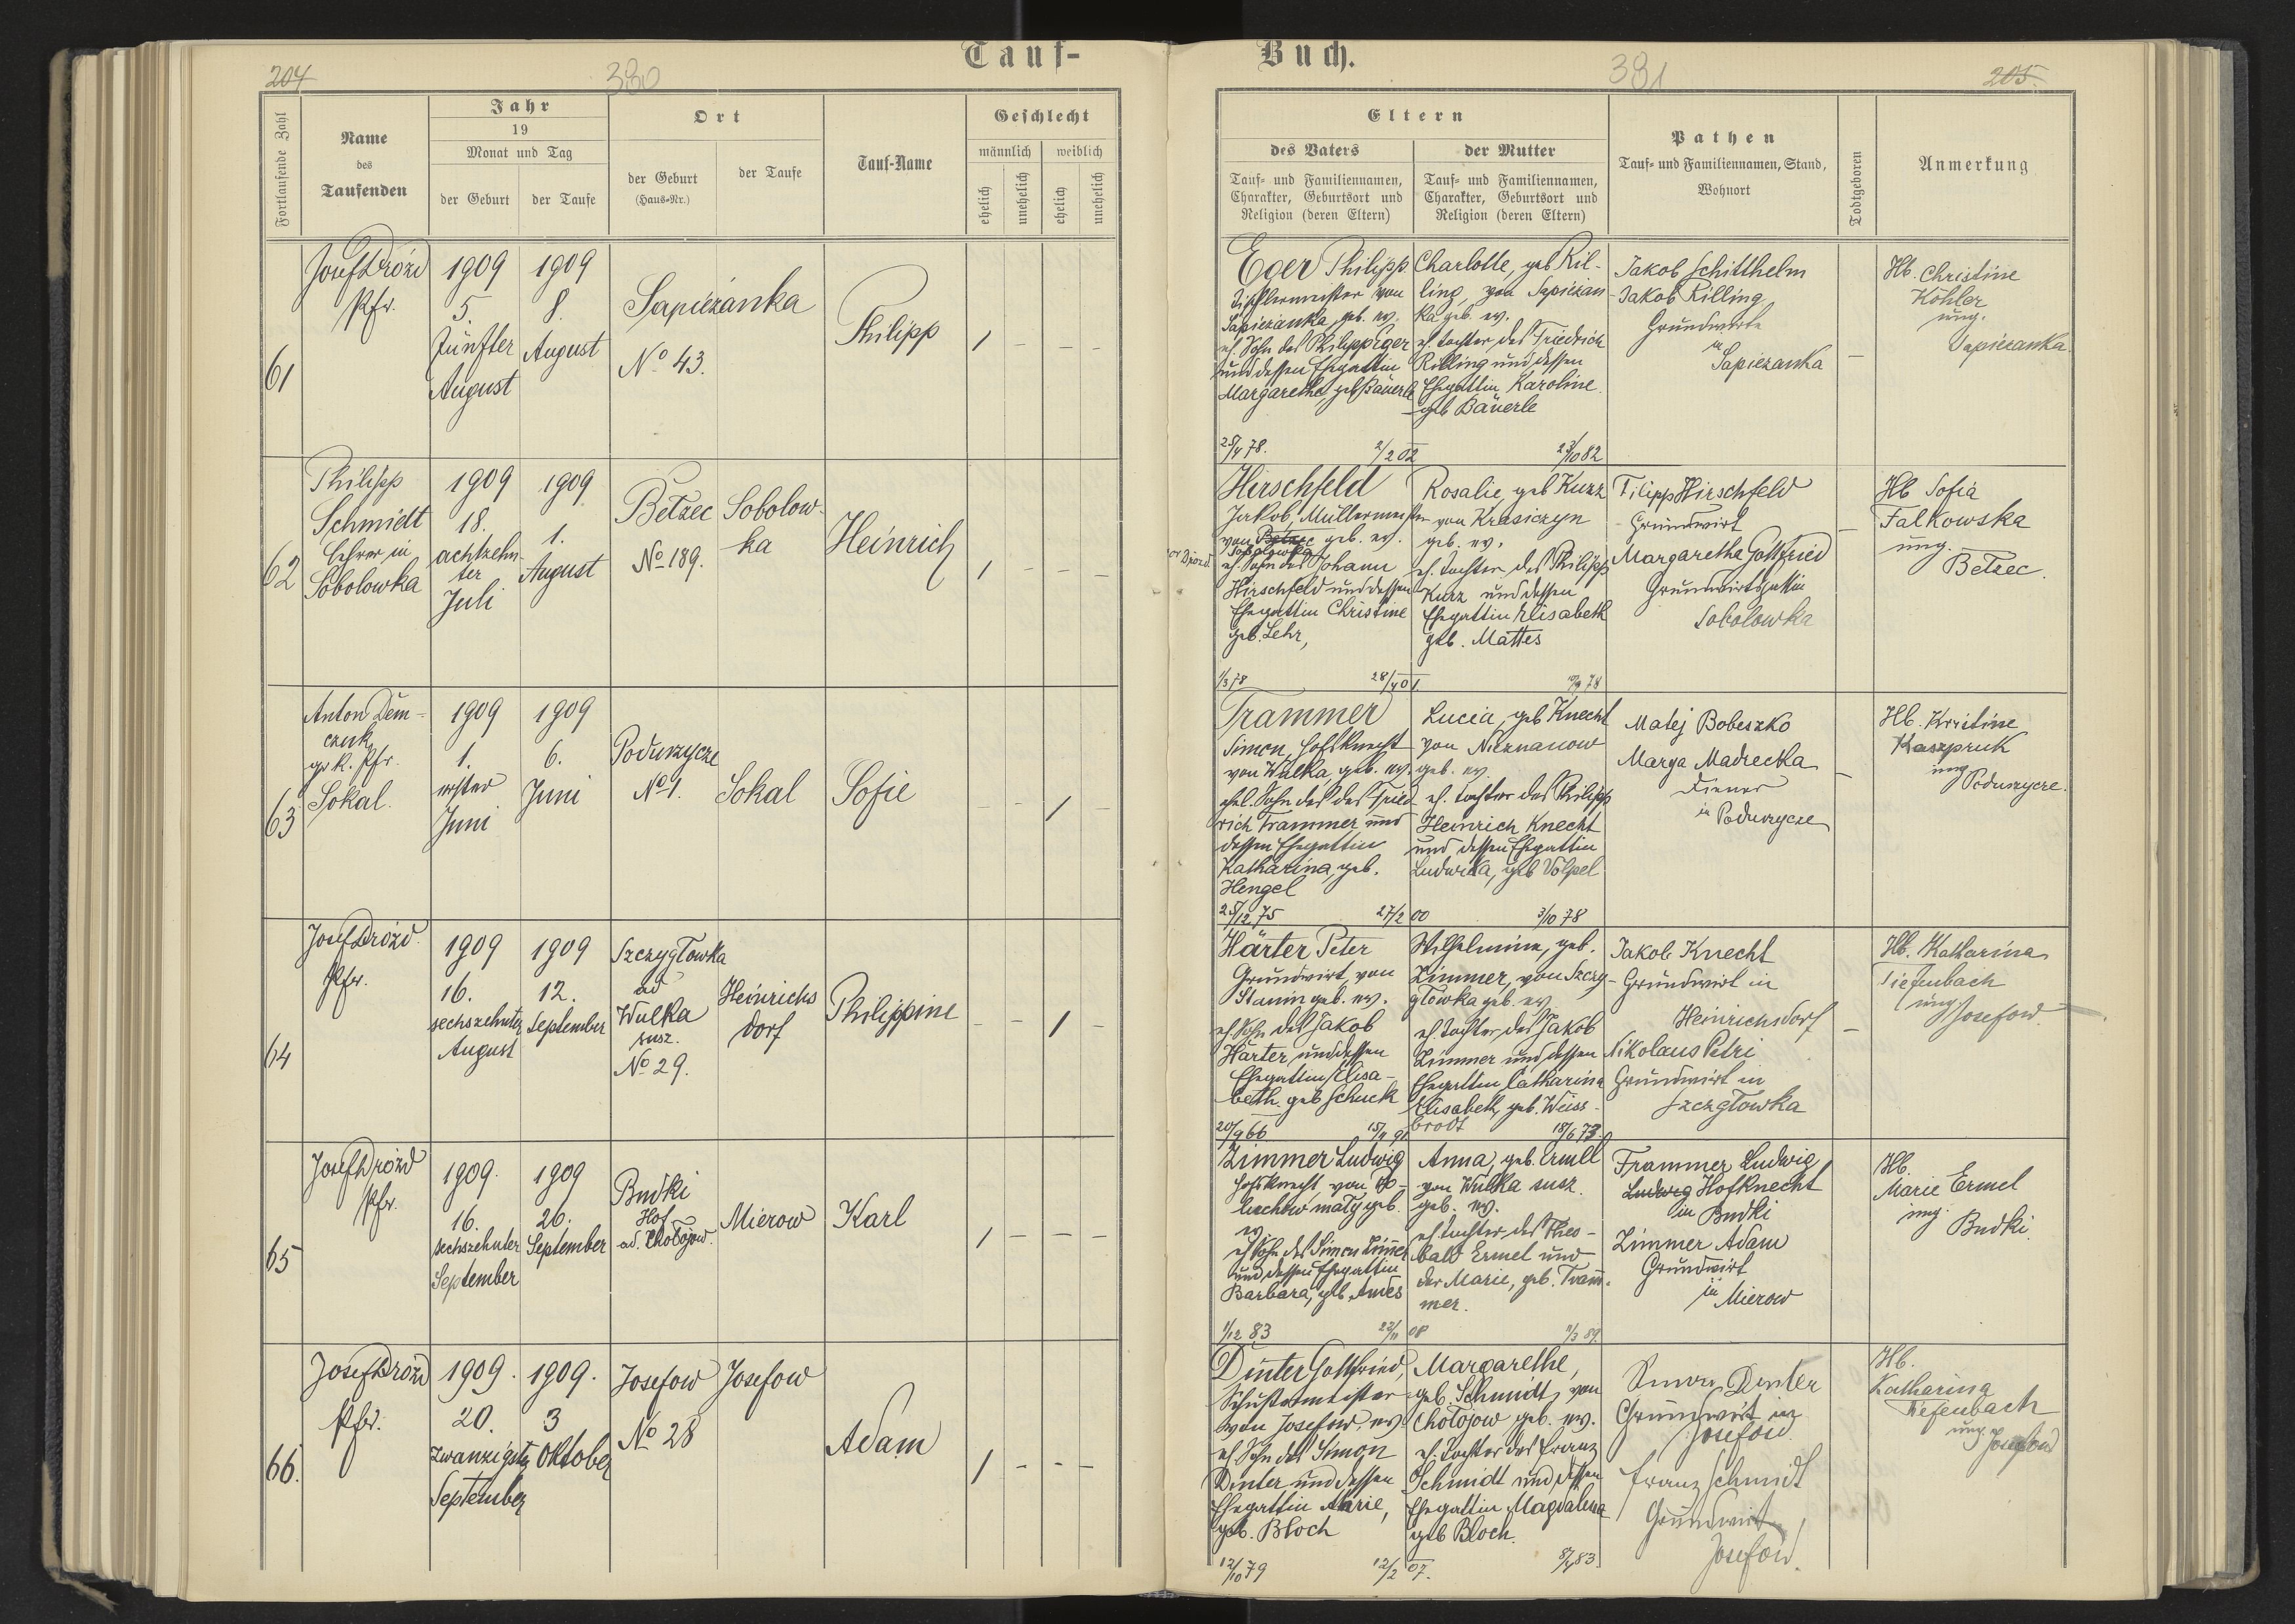 204
380
Tauf-
Fortlaufende Zahl
Name
des
Taufenden
Jahr
19
Monat und Tag
der Geburt
der Taufe
Ort
der Geburt
(Haus-Nr.)
der Taufe
Tauf-Name
Geschlecht
männlich
weiblich
ehelich
unehelich
ehelich
unehelich
61
Josef Drózd
Pfr.
1909
5.
Fünfter
August
1909
8.
August
Sapiezanka
No 43.
Philipp
/ – – –
62
Philipp
Schmidt
Lehrer in
Sobolowka
1909
18.
achtzehn-
ter
Juli
1909
1.
August
Bełzec
No 189.
Sobolow-
ka
Heinrich
/ – – –
63
Anton Dem-
czuk
gr k. Pfr.
Sokal.
1909
1.
erster
Juni
1909
6.
Juni
Poturzycze
No 1.
Sokal
Sofie
– – / –
64
Josef Drózd
Pfr.
1909
16.
sechszehnter
August
1909
12.
September
Szczygłowka
ad
Wulka
susz.
No 29.
Heinrichs
dorf
Philippine
– – / –
65
Josef Drózd
Pfr.
1909.
16.
sechszehnter
September
1909
26.
September
Budki
Hof
ad. Chołojow.
Mierow
Karl
/ – – –
66.
Josef Drózd
Pfr.
1909.
20.
zwanzigste
September
1909.
3
Oktober
Josefow
No 28
Josefow
Adam
/ – – –
Buch.
381
205.
Eltern
des Vaters
Tauf- und Familiennamen,
Charakter, Geburtsort und
Religion (deren Eltern)
der Mutter
Tauf- und Familiennamen,
Charakter, Geburtsort und
Religion (deren Eltern)
Pathen
Tauf- und Familiennamen, Stand,
Wohnort
Todtgeboren
Anmerkung
Eger Philipp
Tischlermeister von
Sapiezanka, geb. ev.
eh. Sohn des Philipp Eger
und dessen Ehegattin
Margaretha, geb Bäuerle
25/4 78.
2/2 02
Charlotte, geb Ril-
ling, von Sapiezan-
ka geb. ev.
eh. Tochter des Friedrich
Rilling und dessen
Ehegattin Karoline
geb Bäuerle
23/10 82
Jakob Schitthelm
Jakob Rilling
Grundwirte
in
Sapiezanka
–
Hb. Christine
Köhler
ung.
Sapiezanka.
Hirschfeld
Jakob, Müllermeister
von Bełzec geb. ev.
Sobolowka
eh. Sohn des Johann
Hirschfeld und dessen
Ehegattin Christine
geb. Lehr,
1/3 78
28/4 01
Rosalie, geb Kurz
von Krasiczyn
geb. ev.
eh. Tochter des Philipp
Kurz und dessen
Ehegattin Elisabeth
geb. Mattes
Filipp Hirschfeld
Grundwirt
Margaretha Gottfried
Grundwirtsgattin
Sobolowka
–
Hb Sofia
Falkowska
ung.
Bełzec.
Trammer
Simon, Hofsknecht
von Wulka, geb. ev.
ehel. Sohn des des Fried
rich Trammer und
dessen Ehegattin
Katharina, geb.
Hengel
25/12 75
27/2 00
Lucia, geb Knecht
von Nieznanow
geb. ev.
eh. Tochter des Philipp
Heinrich Knecht
und dessen Ehegattin
Ludwika, geb Völpel
3/10 78
Matej Bobeszko
Marya Madrecka
Diener
in Poturzycze
–
Hb. Kristine
Kaszpruk
ung
Poturzycze.
Härter Peter
Grundwirt, von
Stanin geb. ev.
eh. Sohn des Jakob
Härter, und dessen
Ehegattin Elisa-
beth. geb Schuck
20/9 66
Wilhelmine, geb.
Zimmer, von Szczy-
głowka geb. ev.
eh. Tochter des Jakob
Zimmer und dessen
Ehegattin Catharina
Elisabeth, geb. Weiss-
brodt
18/6 73.
Jakob Knecht
Grundwirt in
Heinrichsdorf
Nikolaus Petri
Grundwirt in
Szczgłowka
–
Hb. Katharina
Tiefenbach
ung. Josefow.
Zimmer Ludwig
eh Sohn des Simon Zimmer
und dessen Ehegattin
Barbara, geb. Andes
1/12 83
22/11 08
Anna, geb. Ermel
von Wulka susz.
geb. ev.
eh Tochter des Theo-
bald Ermel und
der Marie, geb. Tram-
mer.
11/3 89.
Trammer Ludwig
Ludwig Hofknecht
in Budki
Zimmer Adam
Grundwirt
in
Mierow
Hb.
Marie Ermel
ung.
Budki
Dinter Gottfried,
Schustermeister
von Josefow, ev.
eh. Sohn des Simon
Dinter und dessen
Ehegattin Marie,
geb. Bloch
12/10 79
12/2 07.
Margarethe,
geb. Schmidt, von
Chołojow geb. ev.
eh. Tochter des Franz
Schmidt und dessen
Ehegattin Magdalena
geb Bloch.
Simon Dinter
Grundwirt in
Josefow.
Franz Schmidt
Grundwirt
Josefow.
Hb.
Katharina
Tiefenbach
ung. Josefow